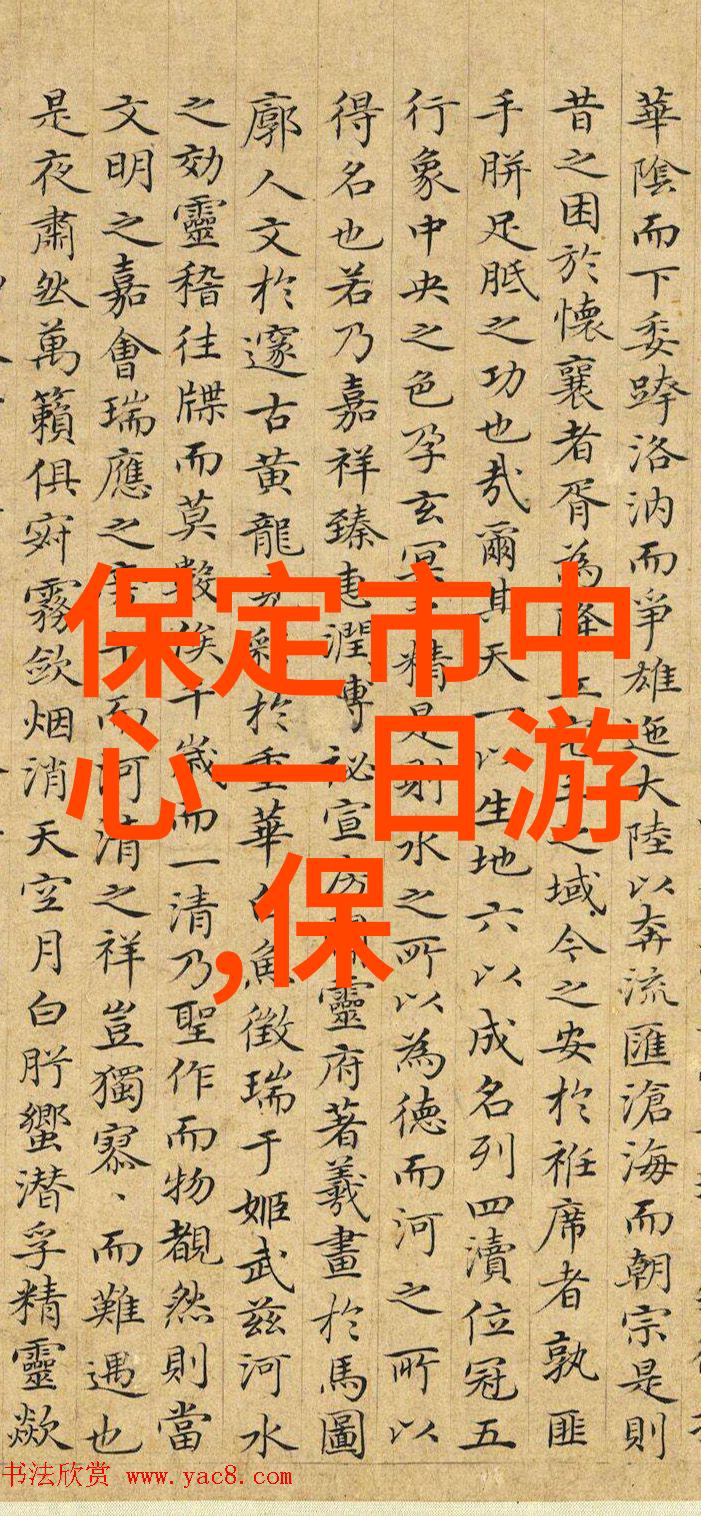 華陰而下委跨洛汭而爭雄迤大陸以奔流匯滄海而朝宗是則
昔之困於懷襄者胥為降之域今之安於袵席者孰匪
手胼足胝之功也哉爾其天一以生地六以成名列四瀆位冠五
行象中央之色孕玄冥之精是則水之所以為德而河之所以
得名也若乃嘉祥臻恵潤溥祕宣房開靈府著羲畫於馬圖
廓人文於邃古黃龍於重華白魚徵瑞于姬武茲河水
之効靈稽往牒而莫數俟千歲而一清乃聖作而物覩然則當
文明之嘉會瑞應之而河清之祥豈獨寥、而難遇也
是夜肅然萬籟俱寂霧斂烟消天空月白肸蠁潜孚精靈歘
保定市中
心一日游
,保
书法欣赏 www.yac8.com